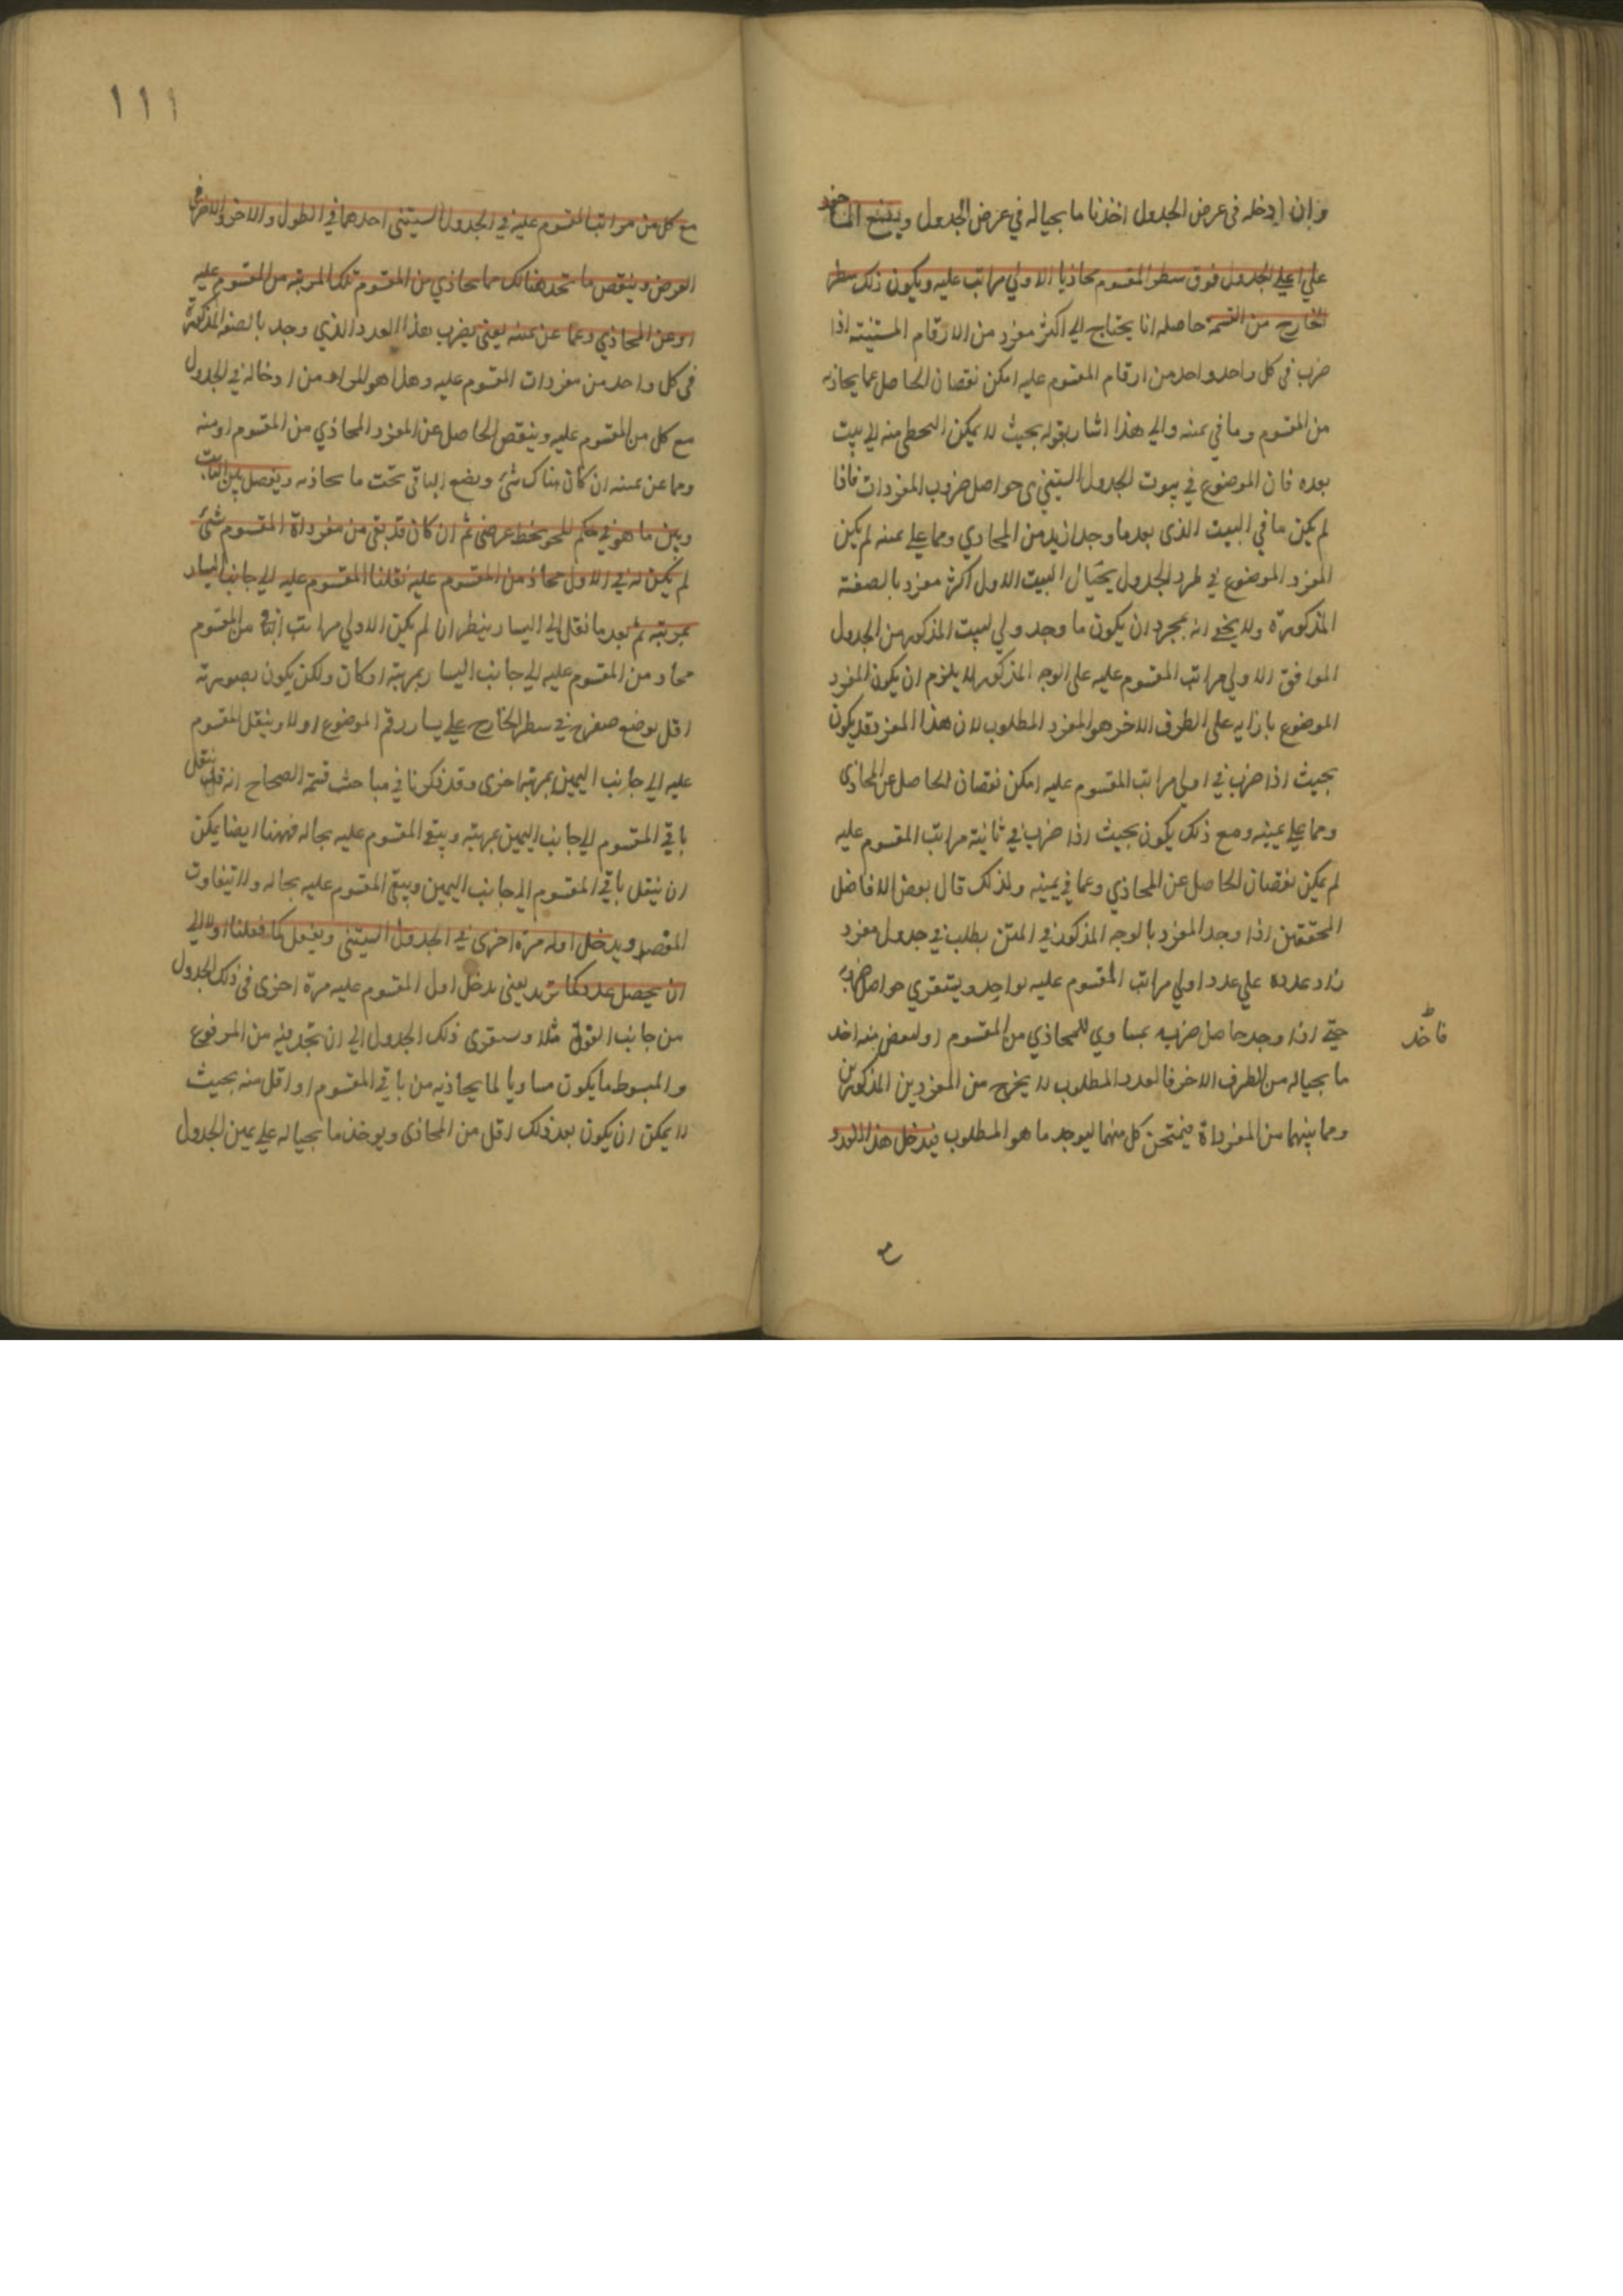 وان ادخله فى عرض الجدول اخذنا ما بحياله في عرض الجدول ويضع الماخوذ
علي اعلي الجدول فوق سطر المقسوم محاذيا الاولي مراتب عليه ويكون ذلك سطر
الخارج من القسمة حاصله انا يحتاج الي اكثر مفرد من الارقام الستينية اذا
ضرب فى كل واحد واحد من ارقام المقسوم عليه امكن نقصان الحاصل عما يحاذيه
من المقسوم وما في يمنه والي هذا اشار بقوله بحيث لا يمكن التخطي منه الي بيت
بعده فان الموضوع في بيوت الجدول الستيني حواصل ضروب المفردات فاذا
لم يكن ما في البيت الذى بعد ما وجد ازيد من المحاذي ومما علي يمنه لم يكن
المفرد الموضوع في طرد الجدول بحيال البيت الاول اكثر مفرد بالصفة
المذكورة ولا يخفى انه بمجرد ان يكون ما وجد ولي لبيت المذكور من الجدول
الموافق الاولي مراتب المقسوم عليه على الوجه المذكور لا يلزم ان يكون المفرد
الموضوع بازايه على الطرف الاخر هو المفرد المطلوب لان هذا المفرد قد يكون
بحيث اذا ضرب في اولي مراتب المقسوم عليه امكن نقصان الحاصل عن المحاذى
ومما علي يمينه ومع ذلك يكون بحيث اذا ضرب في ثانية مراتب المقسوم عليه
لم يمكن نقصان الحاصل عن المحاذي وعما في يمينه ولذلك قال بعض الافاضل
المحققين اذا وجد المفرد بالوجه المذكور في المتن يطلب في جدول مفرد
زاد عدده علي عدد اولي مراتب المقسوم عليه بواحد ويستقري حواصل ضربه
حتي اذا وجد حاصل ضربه بمساوي للمحاذي من المقسوم او لبعض منه اخذ
فاخذ
ما بحياله من الطرف الاخر فالعدد المطلوب لا يخرج من المفردين المذكورين
ومما بينهما من المفرداة فيمتحن كل منهما ليوجد ما هو المطلوب فيدخل هذا العدد
١١١
مع كل من مراتب المقسوم عليه في الجدول الستينى احدهما في الطول والاخر في
العرض وينقص ما تحد هنالك مما يحاذي من المقسوم تلك المرتبة من المقسوم عليه
او عن المحاذي وعما عن يمنه يعنى يضرب هذا العدد الذي وجد بالصفة المذكورة
فى كل واحد من مفردات المقسوم عليه وهذا هو المراد من ادخاله في الجدول
مع كل من المقسوم عليه وينقص الحاصل عن المفرد المحاذي من المقسوم او منه
ومما عن يمنه ان كان هناك شئ ويضع الباقى تحت ما يحاذيه ويفصل بين الثابت
وبين ما هو في حكم المحو بخط عرضى ثم ان كان قد بقى من مفرداة المقسوم شئ
لم يكن له في الاول محاذ من المقسوم عليه نقلنا المقسوم عليه الي جانب اليسار
بمرتبة ثم بعد ما نقل الي اليسار ينظر ان لم يكن الاولي مراتب من المقسوم
محاذ من المقسوم عليه الي جانب اليسار بمرتبة او كان ولكن يكون بصورته
اقل يوضع صفر في سطر الخارج علي يسار رقم الموضوع اولا وينقل المقسوم
عليه الي جانب اليمين بمرتبة اخرى وقد ذكرنا في مباحث قسمة الصحاح انه قد ينقل
باقي المقسوم الي جانب اليمين بمرتبة ويبقي المقسوم عليه بحاله فههنا ايضا يمكن
ان ينقل باقي المقسوم الي جانب اليمين ويبقى المقسوم عليه بحاله ولا تيفاوت
المقصد ويدخل اوله مرة اخرى في الجدول الستينى ويفعل كما فعلنا اولا الي
ان يحصل عدد كما تريد يعنى يدخل اول المقسوم عليه مرة اخرى فى ذلك الجدول
من جانب الفوق مثلا ويستقرى ذلك الجدول الي ان تجد فيه من المرفوع
والمبسوط ما يكون مساويا لما يحاذيه من باقي المقسوم او اقل منه بحيث
لا يمكن ان يكون بعد ذلك اقل من المحاذى ويوخذ ما بحياله علي يمين الجدول